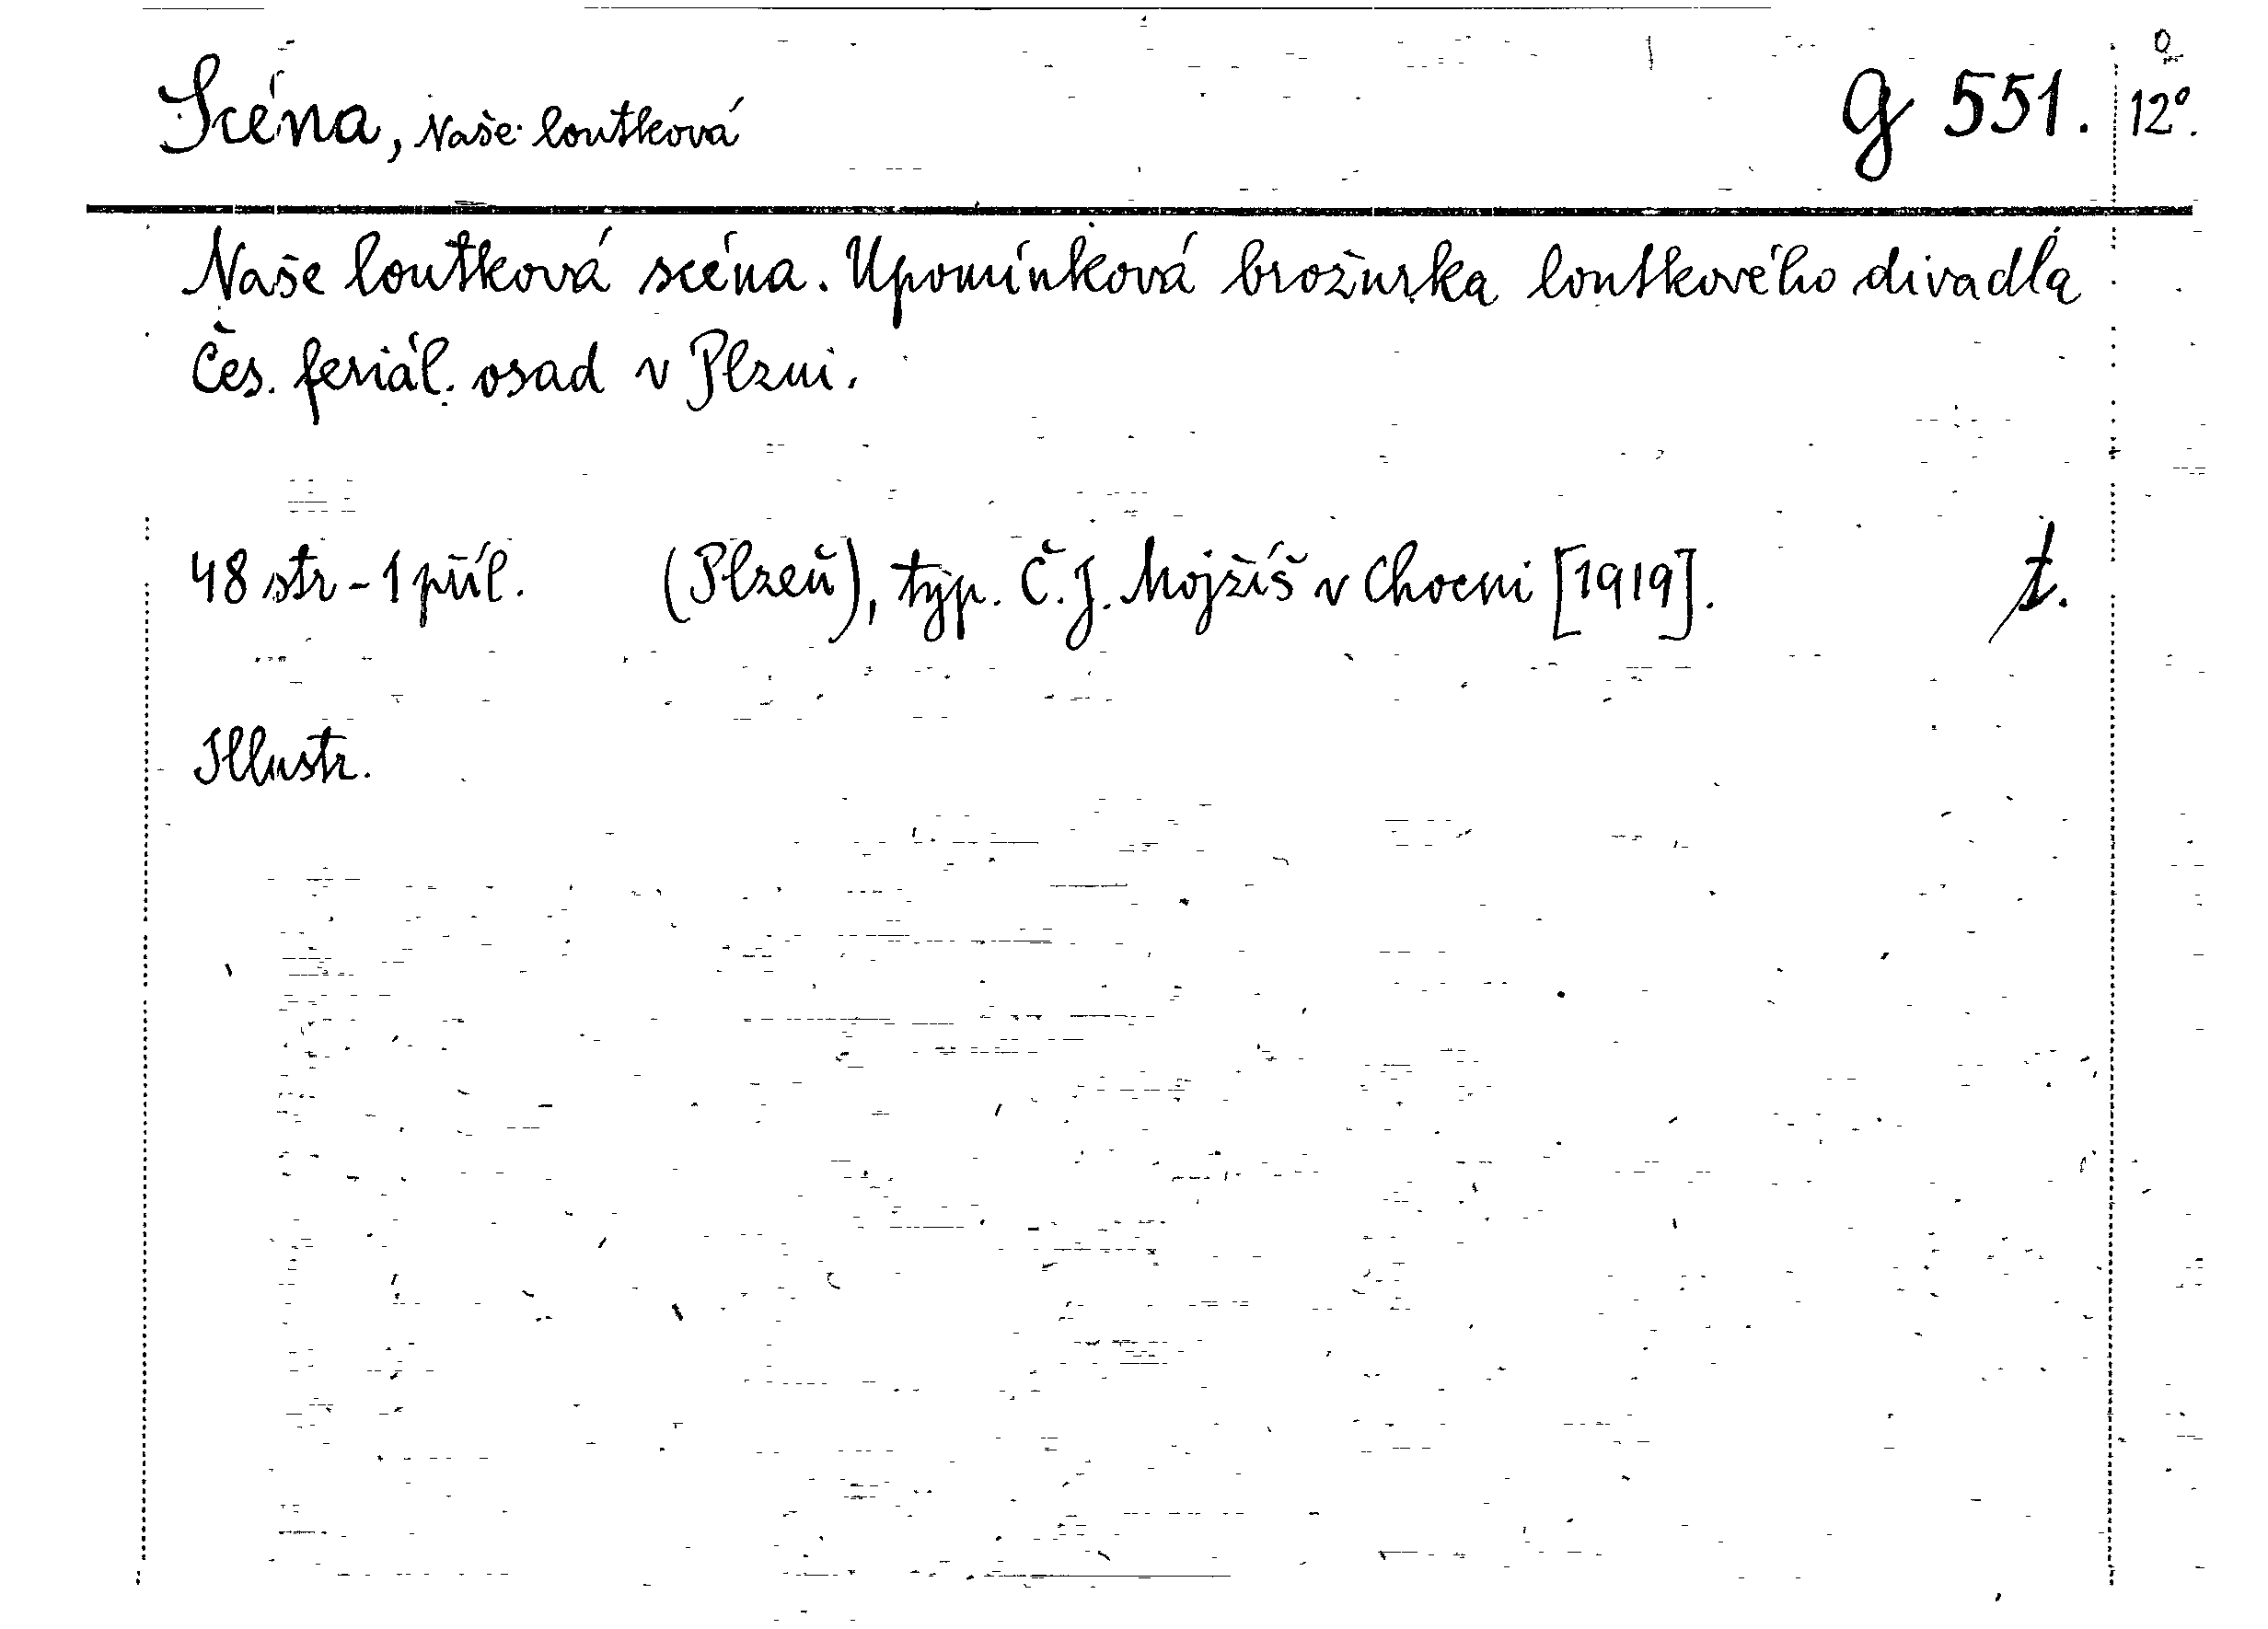 Scéna, Naše loutková g 551. 12°.
Naše loutková scéna. Upomínková brožurka loutkového divadla
Čes. feriál. osad v Plzni.
48 str - 1 příl. (Plzeň), typ. Č. J. Mojžíš v Chocni [1919]. t.
Illustr.